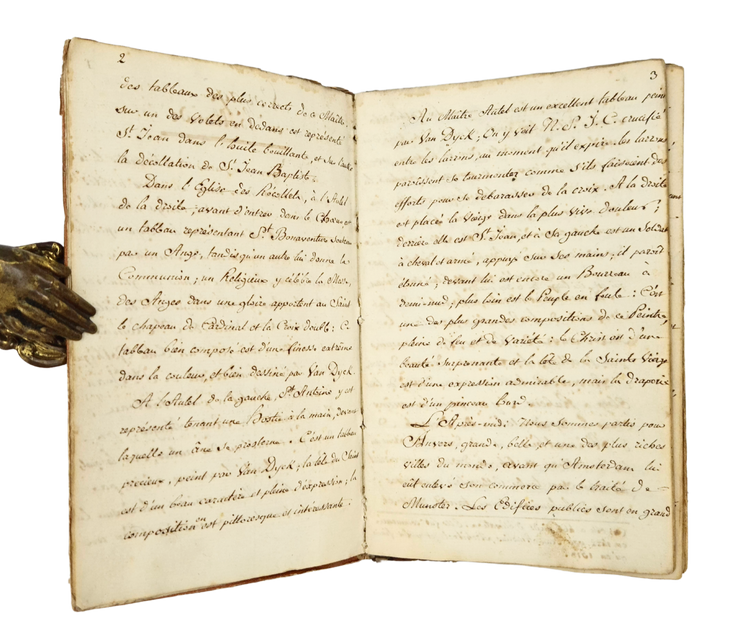 2
des tableaux des plus corrects de ce Maître,
sur un des Volets en dedans est représenté
St. Jean dans l'huile bouillante, et sur l'autre
la décollation de St. Jean Baptiste.
Dans l'Eglise des Récollets, à l'Autel
de la droite, avant d'entrer dans le Choeur est
un tableau représentant St. Bonaventure soutenu
par un Ange, tandis qu'un autre lui donne la
Communion; un Religieux y célèbre la Messe,
des Anges dans une gloire apportent au Saint
le chapeau de Cardinal et la Croix double: Ce
tableau bien composé est d'une finesse extrême
dans la couleur, et bien dessiné par Van Dyck.
A l'Autel de la gauche, St. Antoine y est
représenté tenant une Hostie à la main, devant
laquelle un âne se prosterne. C'est un tableau
précieux, peint par Van Dyck, la tête du Saint
est d'un beau caractère et pleine d'expression; la
composition en est pittoresque et intéressante:
3
Au Maître Autel est un excellent tableau peint
par Van Dyck; On y voit N. S. J. C. crucifié
entre les larrons, au moment qu'il expire, les larrons
paroissent se tourmenter comme s'ils faisoient des
efforts pour se débarasser de la croix. A la droite
est placée la Vierge dans la plus vive douleur;
derrière elle est St. Jean, et à sa gauche est un Soldat
à cheval et armé, appuyé sur ses mains; il paroît
étonné; devant lui est encore un Bourreau à
demi-nud; plus loin est le Peuple en foule: C'est
une des plus grandes compositions de ce Peintre,
pleine de feu et de Variété: le Christ est d'une
beauté surprenante et la tête de la Sainte Vierge
est d'une expression admirable, mais la draperie
est d'un pinceau
L'Après-midi: Nous sommes partis pour
Anvers, grande, belle et une des plus riches
villes du monde, avant qu'Amsterdam lui
eût enlevé son commerce par le traité de
Munster. Les Edifices publics sont en grand